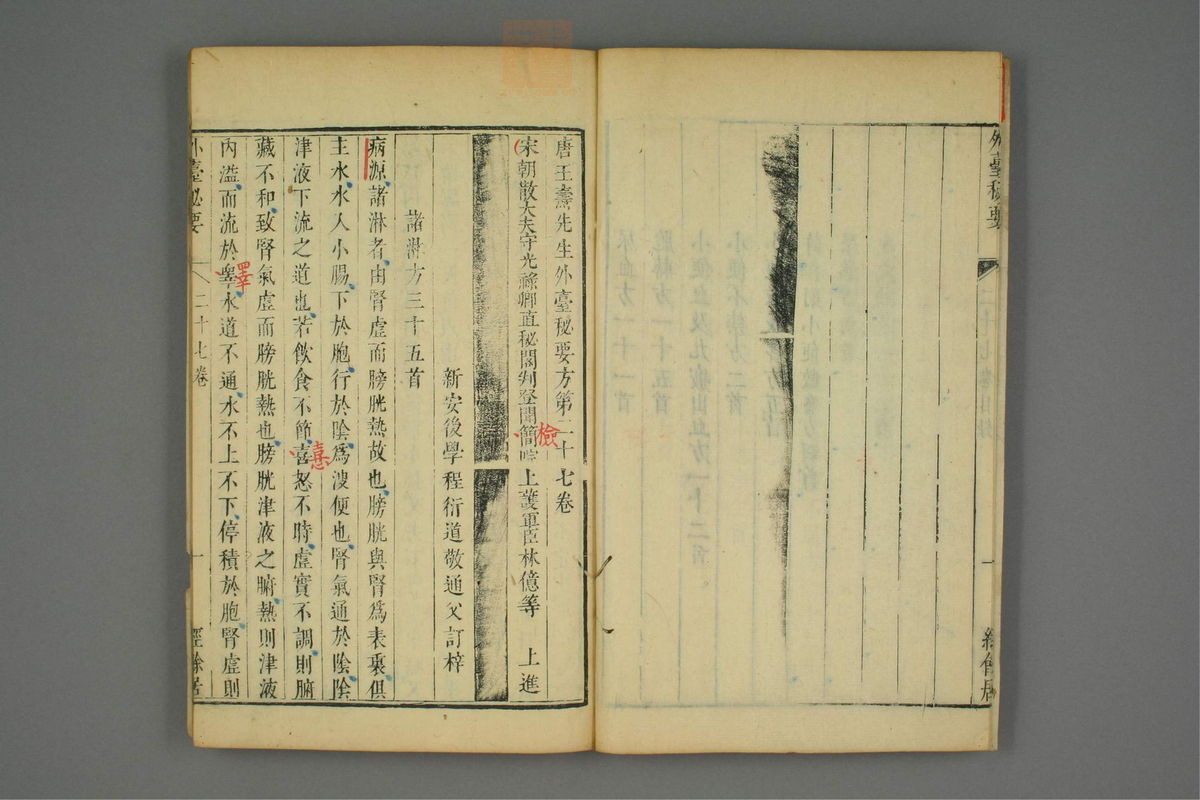 外臺秘要
一
經餘居
唐王燾先生外臺秘要方第二十七卷
宋朝散大夫守光祿卿直秘閣判登聞簡院上護軍臣林億等 上進
檢
新安後學程衍道敬通父訂梓
諸淋方三十五首
病源諸淋者由腎虛而膀胱熱故也膀胱與腎為表裏俱
主水水入小腸下於胞行於陰為溲便也腎氣通於陰陰
津液下流之道也若飲食不節喜怒不時虛實不調則腑
憙
藏不和致腎氣虛而膀胱熱也膀胱津液之腑熱則津液
內溢而流於睪水道不通水不上不下停積於胞腎虛則
澤
外臺秘要
二十七卷
一
經餘居